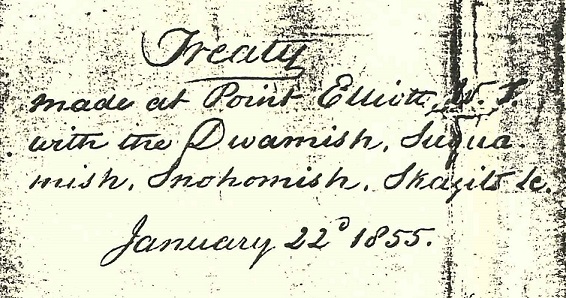 Treaty
made at Point Elliott, W. T.
with the Dwamish, Suqua-
mish, Snohomish, Skagits &c.
January 22d 1855.